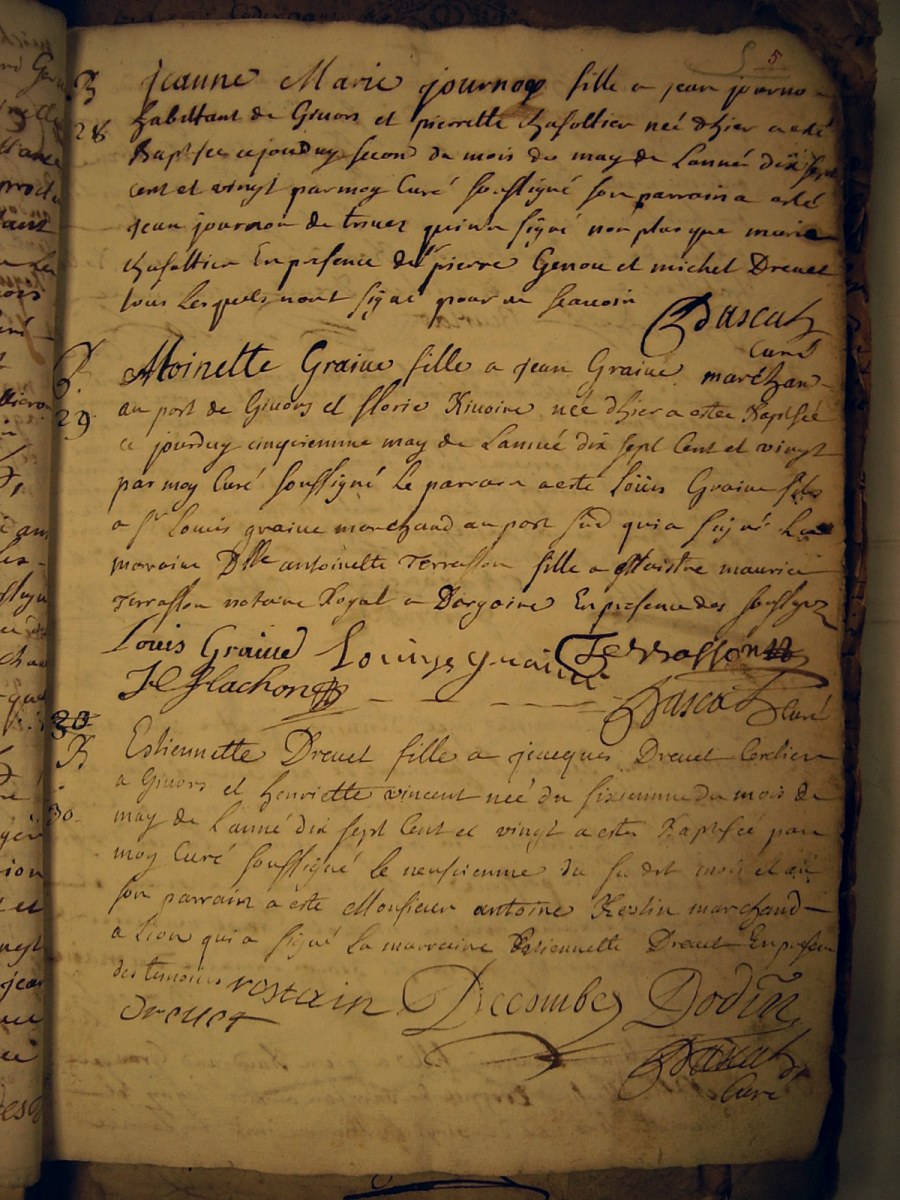 5
B
28
Jeanne Marie journoy fille a jean journo
habittant de Givors et pierrette chafottier neé d'hier a esté
Baptisée cejourduy second du mois de may de Lanneé dix sept
cent et vingt par moy Curé soussigné son parrain a esté
jean journou de qui n'a signé non plus que marie
chafottier En presence de pierre Genou et michel Drevet
tous Lesquels nont signé pour ne sçavoir
Dascat
Curé
B.
29
Atoinette Graive fille a jean Graive marchan
au port de Givors et florie Rivoire neé d'hier a estee Baptisée
ce jourduy cinquiemme may de Lanneé dix sept Cent et vingt
par moy Curé soussigné Le parrain a esté Loüis Graive fils
a sr Louis graive marchand au port sud qui a signé La
marraine Dlle antoinette Terrasson fille a Maistre maurice
Terrasson notaire Royal a Dargoire En presence des soussignez
Louis Graive Terrasson
J C flachon Dascat Curé
30
B
30.
Estiennette Drevet fille a jacques Drevet Cordier
a Givors et henriette vincent neé du sixiemme du mois de
may de Lanné dix sept Cent et vingt a estee Baptiseé par
moy Curé soussigné le neufiemme du sudit mois et an
son parrain a esté Monsieur antoine Restin marchand
a Lion qui a signé La marraine Estiennette Drevet En presen
des temoins restain Decombe Dodin
drevet
Dascat
Curé